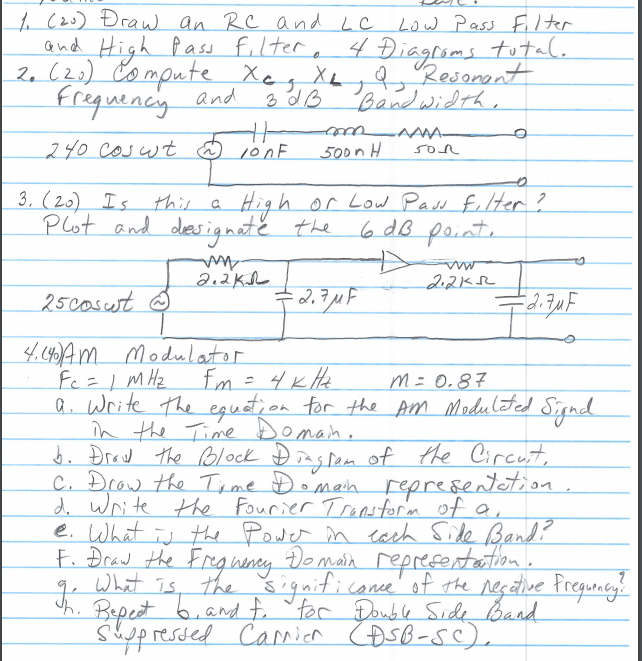 1. (20) Draw an RC and LC Low Pass Filter
and High Pass Filter. 4 Diagrams total.
2. (20) Compute Xc, XL, Q, Resonant
Frequency and 3 dB Bandwidth.
240 cos wt 10nF 500nH 50Ω
3. (20) Is this a High or Low Pass Filter?
Plot and designate the 6 dB point.
2.2KΩ 2.2KΩ
25 cos wt 2.7µF 2.7µF
4. (40) AM Modulator
Fc = 1 MHz fm = 4 kHz m = 0.87
a. Write the equation for the AM Modulated Signal
in the Time Domain.
b. Draw the Block Diagram of the Circuit.
c. Draw the Time Domain representation.
d. Write the Fourier Transform of a.
e. What is the Power in each Side Band?
F. Draw the Frequency Domain representation.
g. What is the significance of the negative frequency?
h. Repeat b. and f. for Double Side Band
Suppressed Carrier (DSB-SC).